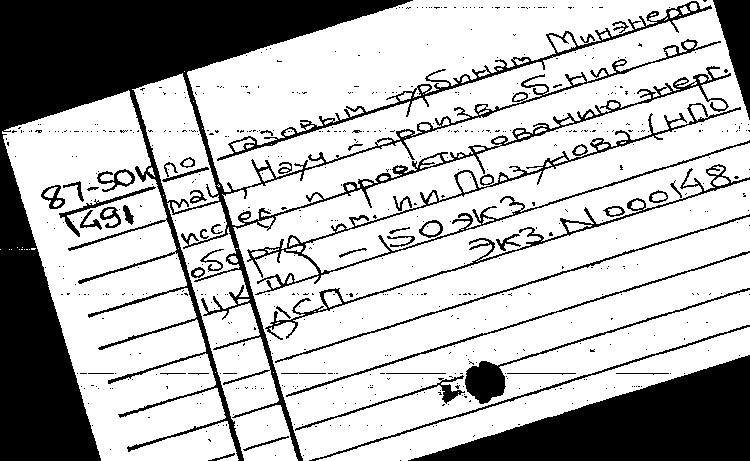 87-50к
1491
по газовым турбинам, Минэнерго.
маш, Науч.-произв. об-ние по
исслед. и проектированию энерг.
оборуд. им. И.И. Ползунова (НПО
ЦКТИ). – 150 экз.
ДСП. Экз. N 000148.